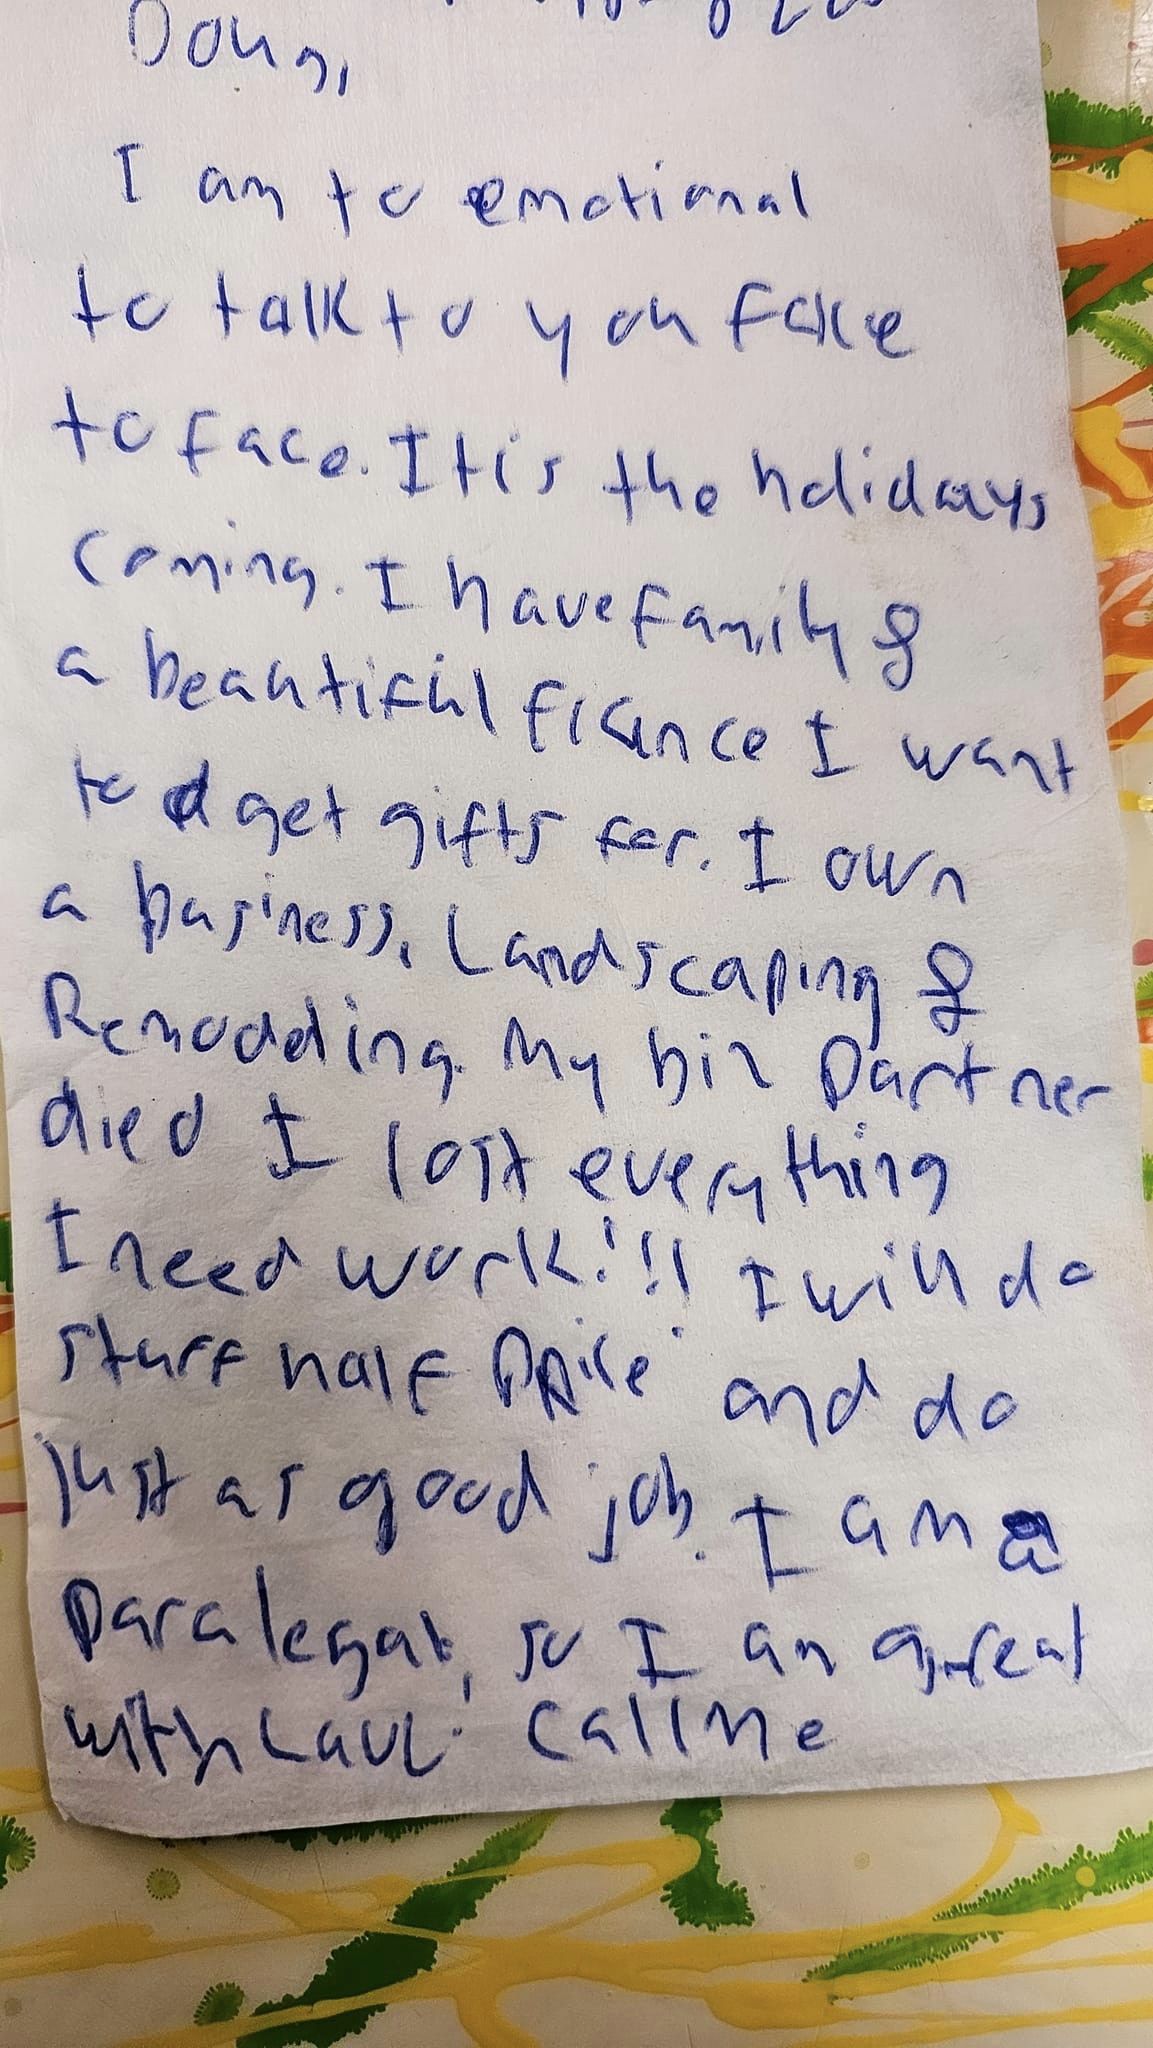 Doug,
I am to emotional
to talk to you face
to face. It is the holidays
coming. I have family &
a beautiful fiance I want
to get gifts for. I own
a business, Landscaping &
Remodding. My biz Partner
died I lost everything
I need work!!! I will do
stuff half Pprice and do
just as good job. I am a
Paralegal, so I am great
with Law! Call Me